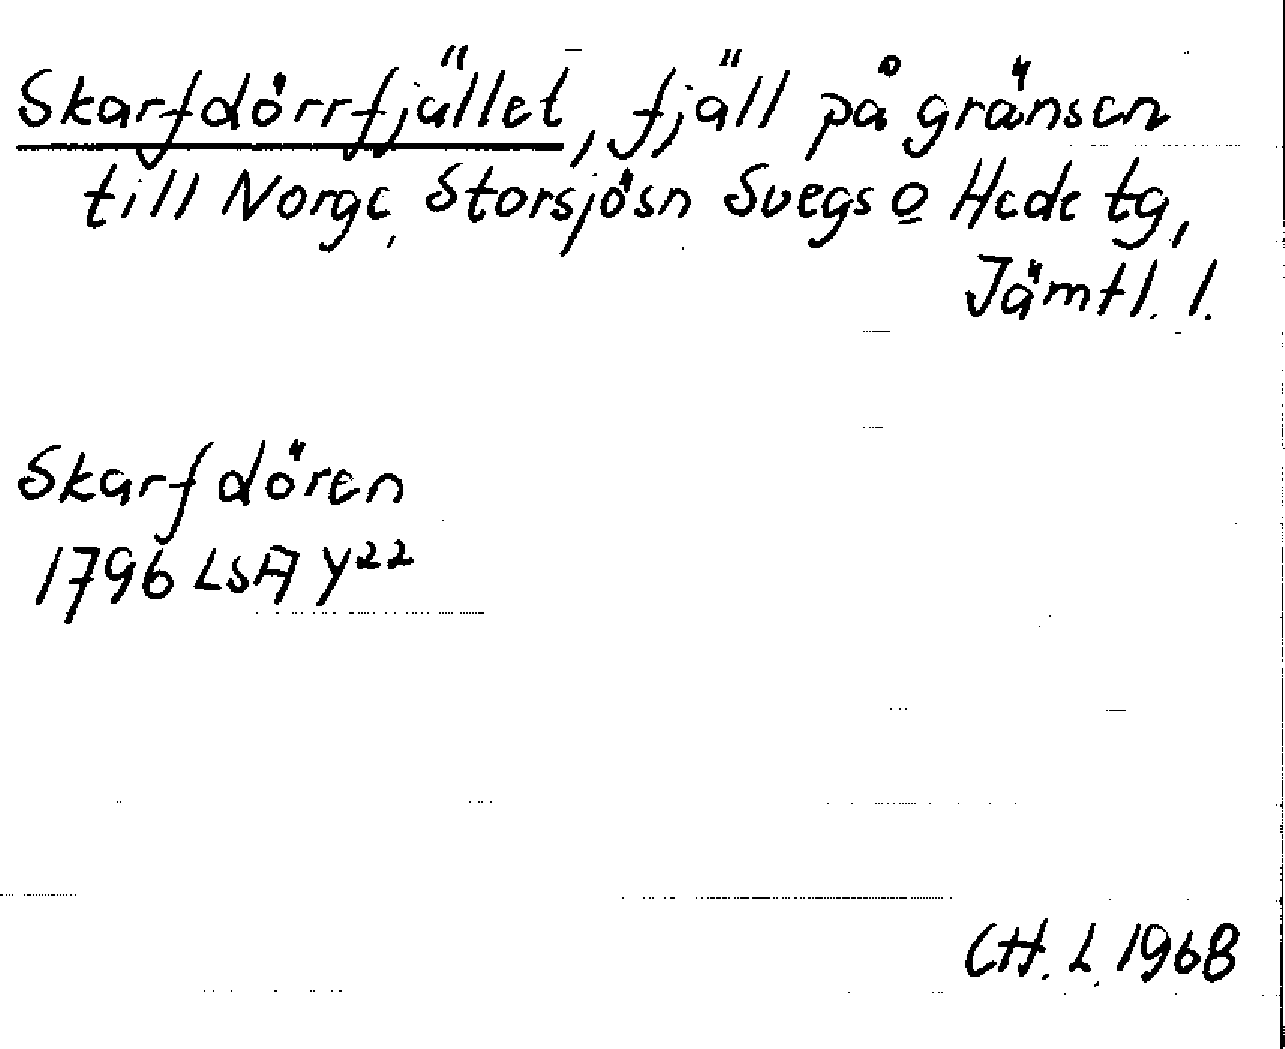 Skarfdörrfjället, fjäll på gränsen
till Norge, Storsjösn Svegs o Hede tg,
Jämtl. l.
Skarfdören
1796 LSA Y22
CH. L. 1968